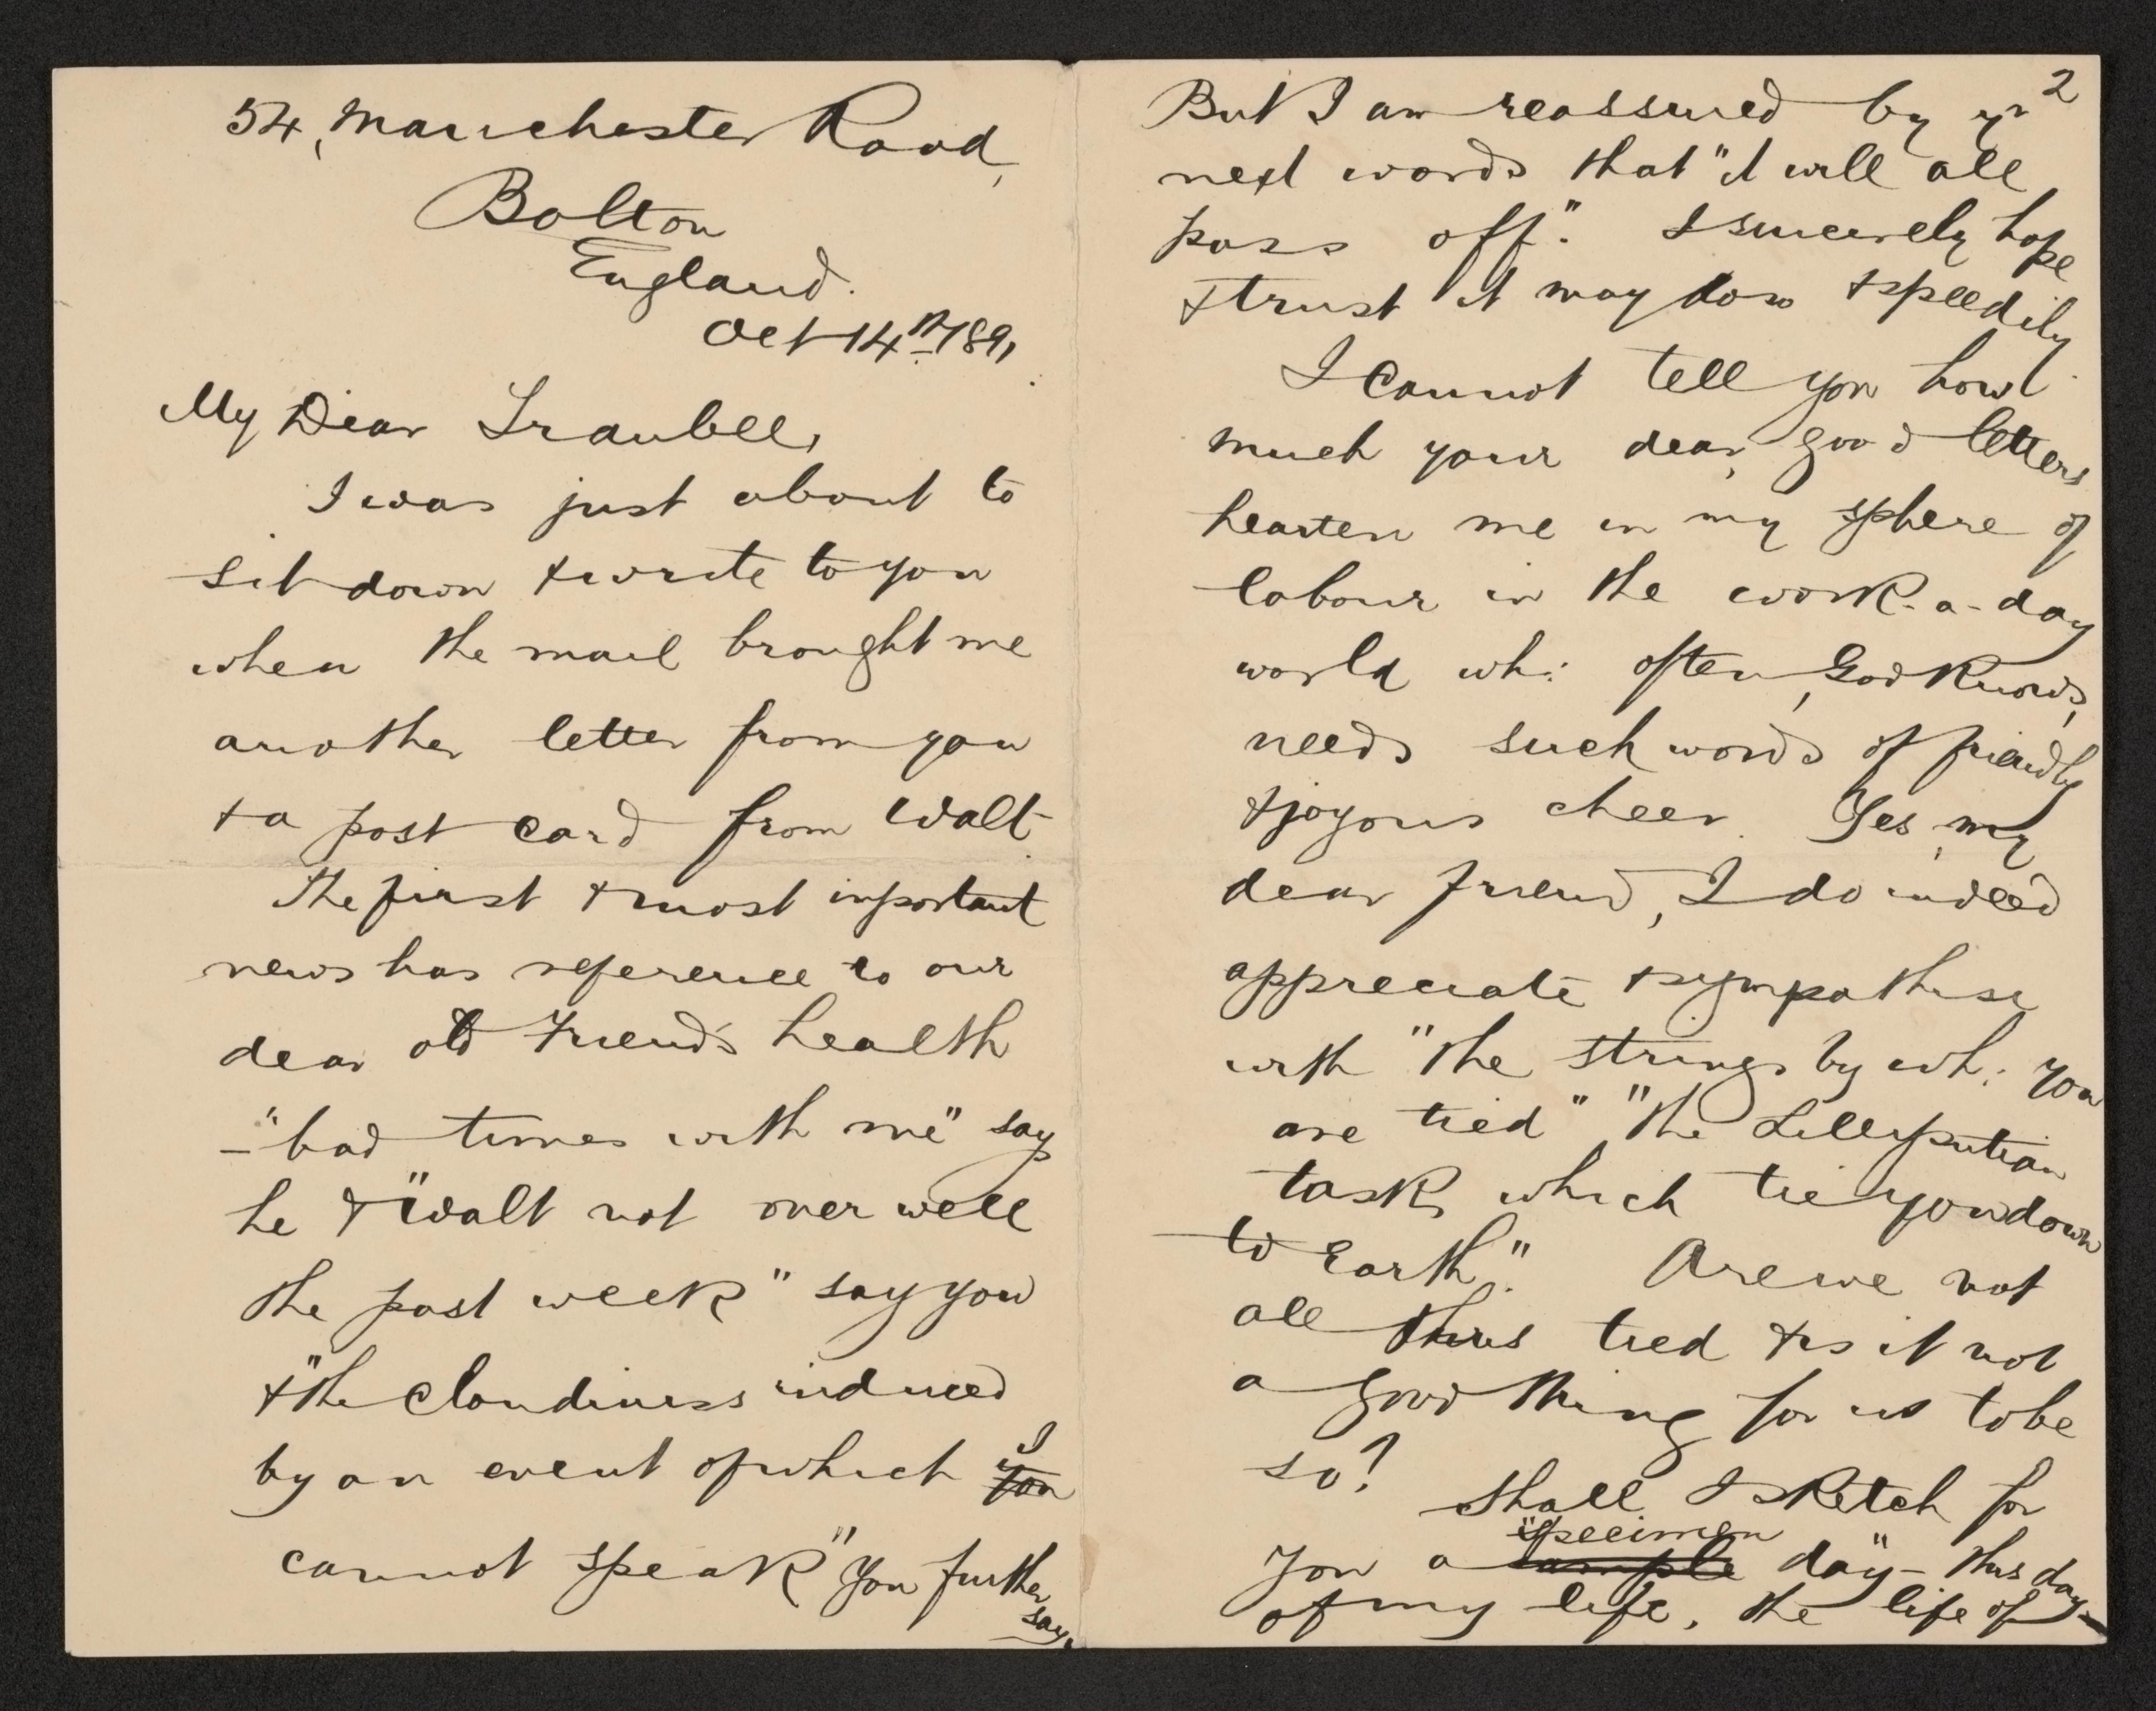 54, Manchester Road,
Bolton
England.
Oct 14th 1891.
My Dear Traubel,
I was just about to
sit down & write to you
when the mail brought me
another letter from you
& a post card from Walt.
The first & most important
news has reference to our
dear old Friend's health
– "bad times with me" say
he & "Walt not over well
the past week" say you
& "the cloudiness induced
by an event of which you I
cannot speak" You further
say,
2
But I am reassured by yr
next words that "it will all
pass off." I sincerely hope
& trust it may do so & speedily.
I cannot tell you how
much your dear, good letters
hearten me in my sphere of
labour in the work-a-day
world wh: often, God knows,
needs such words of friendly
& joyous cheer. Yes, my
dear friend, I do indeed
appreciate & sympathise
with "the strings by wh: you
are tied" "the Lilliputian
tasks which tie you down
to Earth". Are we not
all thus tied & is it not
a good thing for us to be
so?
Shall I sketch for
you a sample "specimen day" – this day –
of my life, the life of